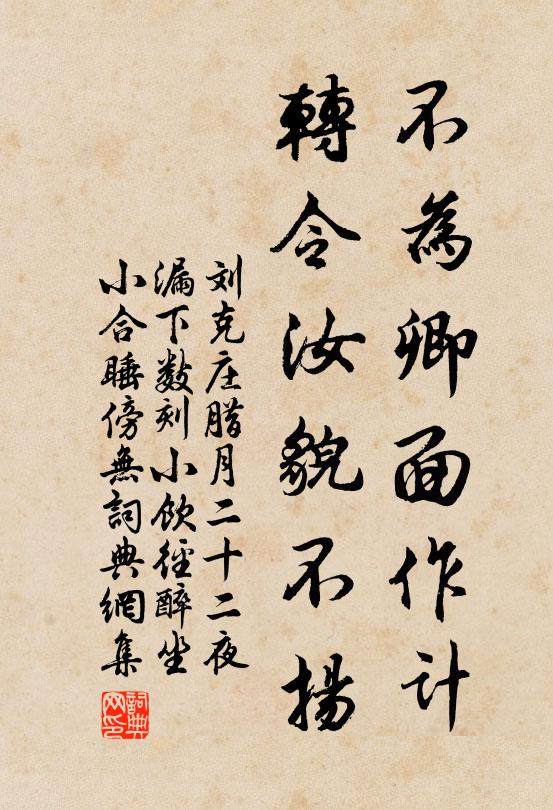 不為卿面作計
轉令汝貌不揚
刘克庄腊月二十二夜
漏下数刻小飲徑醉坐
小合睡傍無詞典網集
詞典网印